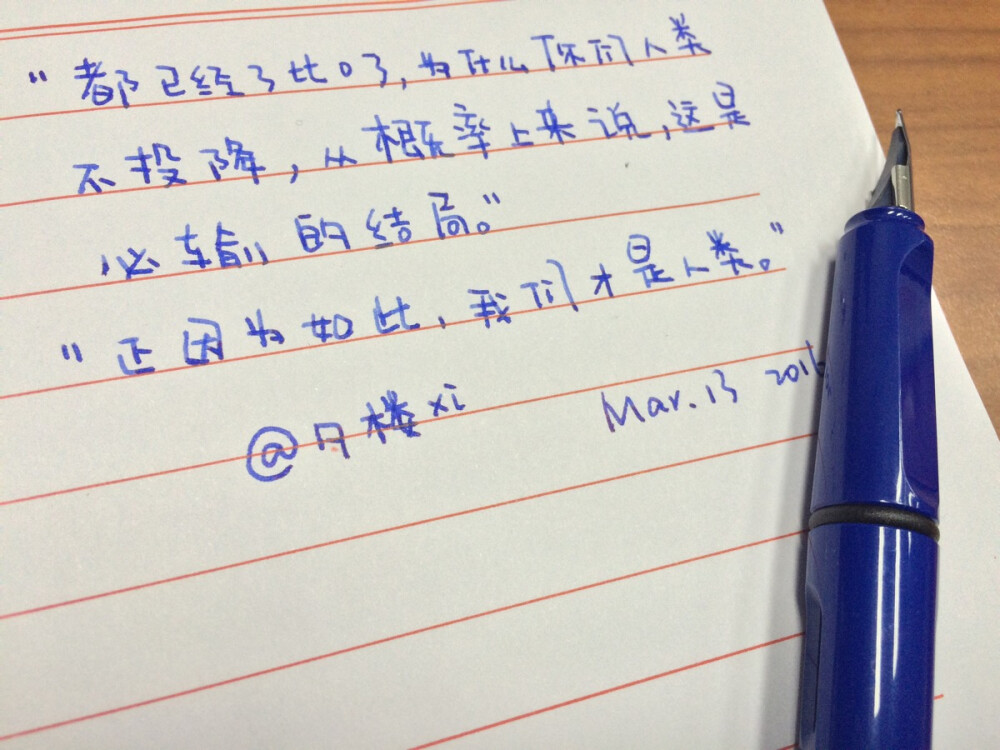 “都已经3比0了,为什么你们人类
不投降,从概率上来说,这是
必输的结局。”
“正因为如此,我们才是人类。”
@月楼xi Mar.13 2016